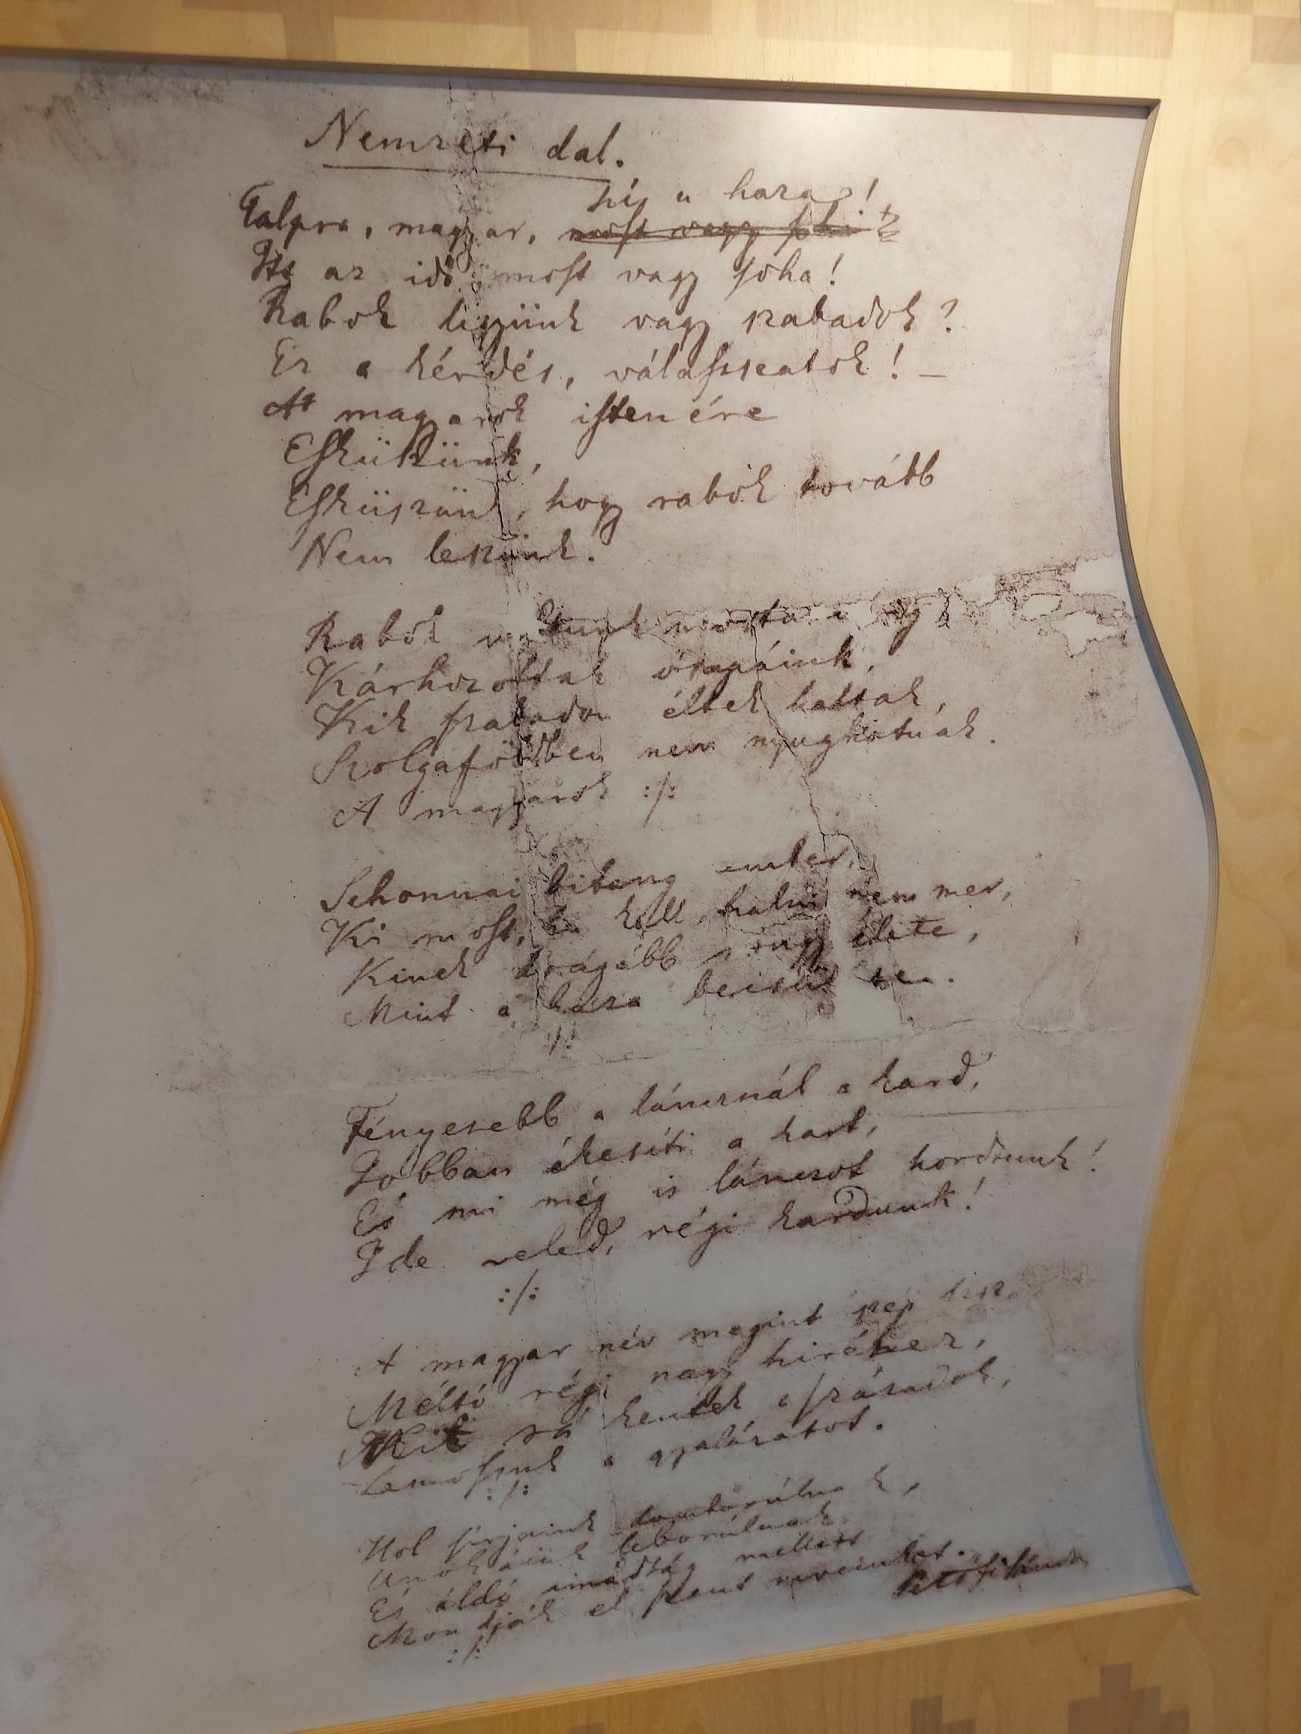 Nemzeti dal.
hí a haza!
Talpra, magyar, most vagy soha
Itt az idő, most vagy soha!
Rabok legyünk vagy szabadok?
Ez a kérdés, válasszatok! –
A magyarok istenére
Esküszünk,
Esküszünk, hogy rabok tovább
Nem leszünk.
Rabok voltunk mostanáig
Kárhozottak ősapáink,
Kik szabadon éltek haltak,
Szolgaföldben nem nyughatnak.
A magyarok :/:
Sehonnai bitang ember,
Ki most, ha kell, halni nem mer,
Kinek drágább rongy élete,
Mint a haza becsülete.
:/:
Fényesebb a láncznál a kard,
Jobban ékesíti a kart,
És mi még is lánczot hordtunk!
Ide veled, régi kardunk!
:/:
A magyar név megint szép lesz,
Méltó régi nagy hiréhez,
Mit rá kentek a századok,
Lemossuk a gyalázatot.
:/:
Hol sírjaink domborúlnak,
Unokáink leborúlnak
És áldó imádság mellett
Mondják el szent neveinket.
:/:
Petőfi Sándor